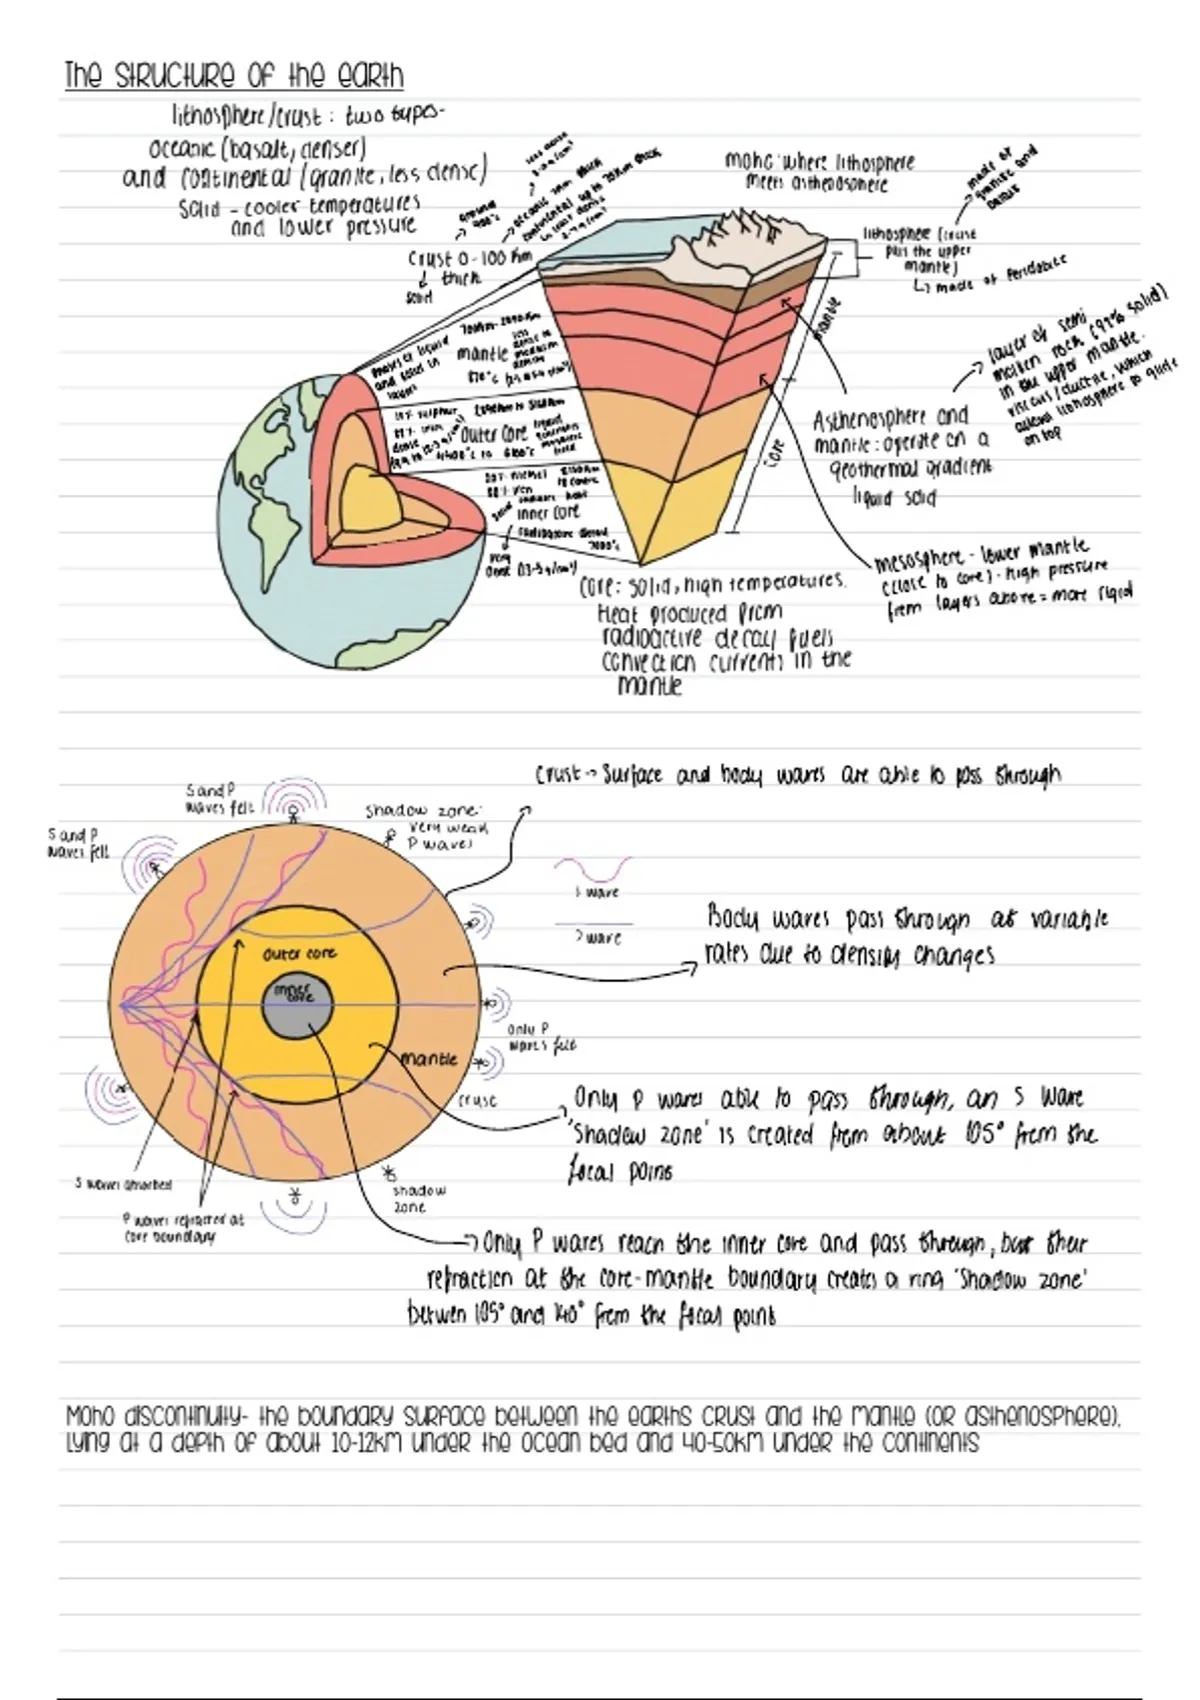 The structure of the earth
lithosphere/crust: two types-
oceanic (basalt, denser)
and continental (granite, less dense)
Solid - cooler temperatures
and lower pressure
Crust 0-100 km
thick
solid
oceanic 7km thick
continental up to 70km thick
moho: where lithosphere
meets asthenosphere
made of
granite and
lithosphere (crust
plus the upper
mantle)
↳ made of peridotite
mantle
core
layer of semi
molten rock (99% solid)
in the upper mantle.
viscous/ductile, which
allows lithosphere to glide
on top
Asthenosphere and
mantle: operate on a
geothermal gradient
liquid solid
mesosphere - lower mantle
(close to core) - high pressure
from layers above = more rigid
and solid in
layers
mantle
outer core
inner core
core: solid, high temperatures.
Heat produced from
radioactive decay fuels
convection currents in the
mantle
crust → Surface and body waves are able to pass through
S and P
waves felt
S and P
waves felt
shadow zone:
very weak
P waves
s wave
wave
Body waves pass through at variable
rates due to density changes
outer core
inner
core
mantle
crust
only P
waves felt
Only P waves able to pass through, an S Wave
'Shadow zone' is created from about 105° from the
focal point
S waves absorbed
P waves refracted at
core boundary
shadow
zone
→ Only P waves reach the inner core and pass through, but their
refraction at the core-mantle boundary creates a ring 'Shadow zone'
between 105° and 140° from the focal point
Moho discontinuity- the boundary surface between the earths crust and the mantle (or asthenosphere),
lying at a depth of about 10-12km under the ocean bed and 40-50km under the continents